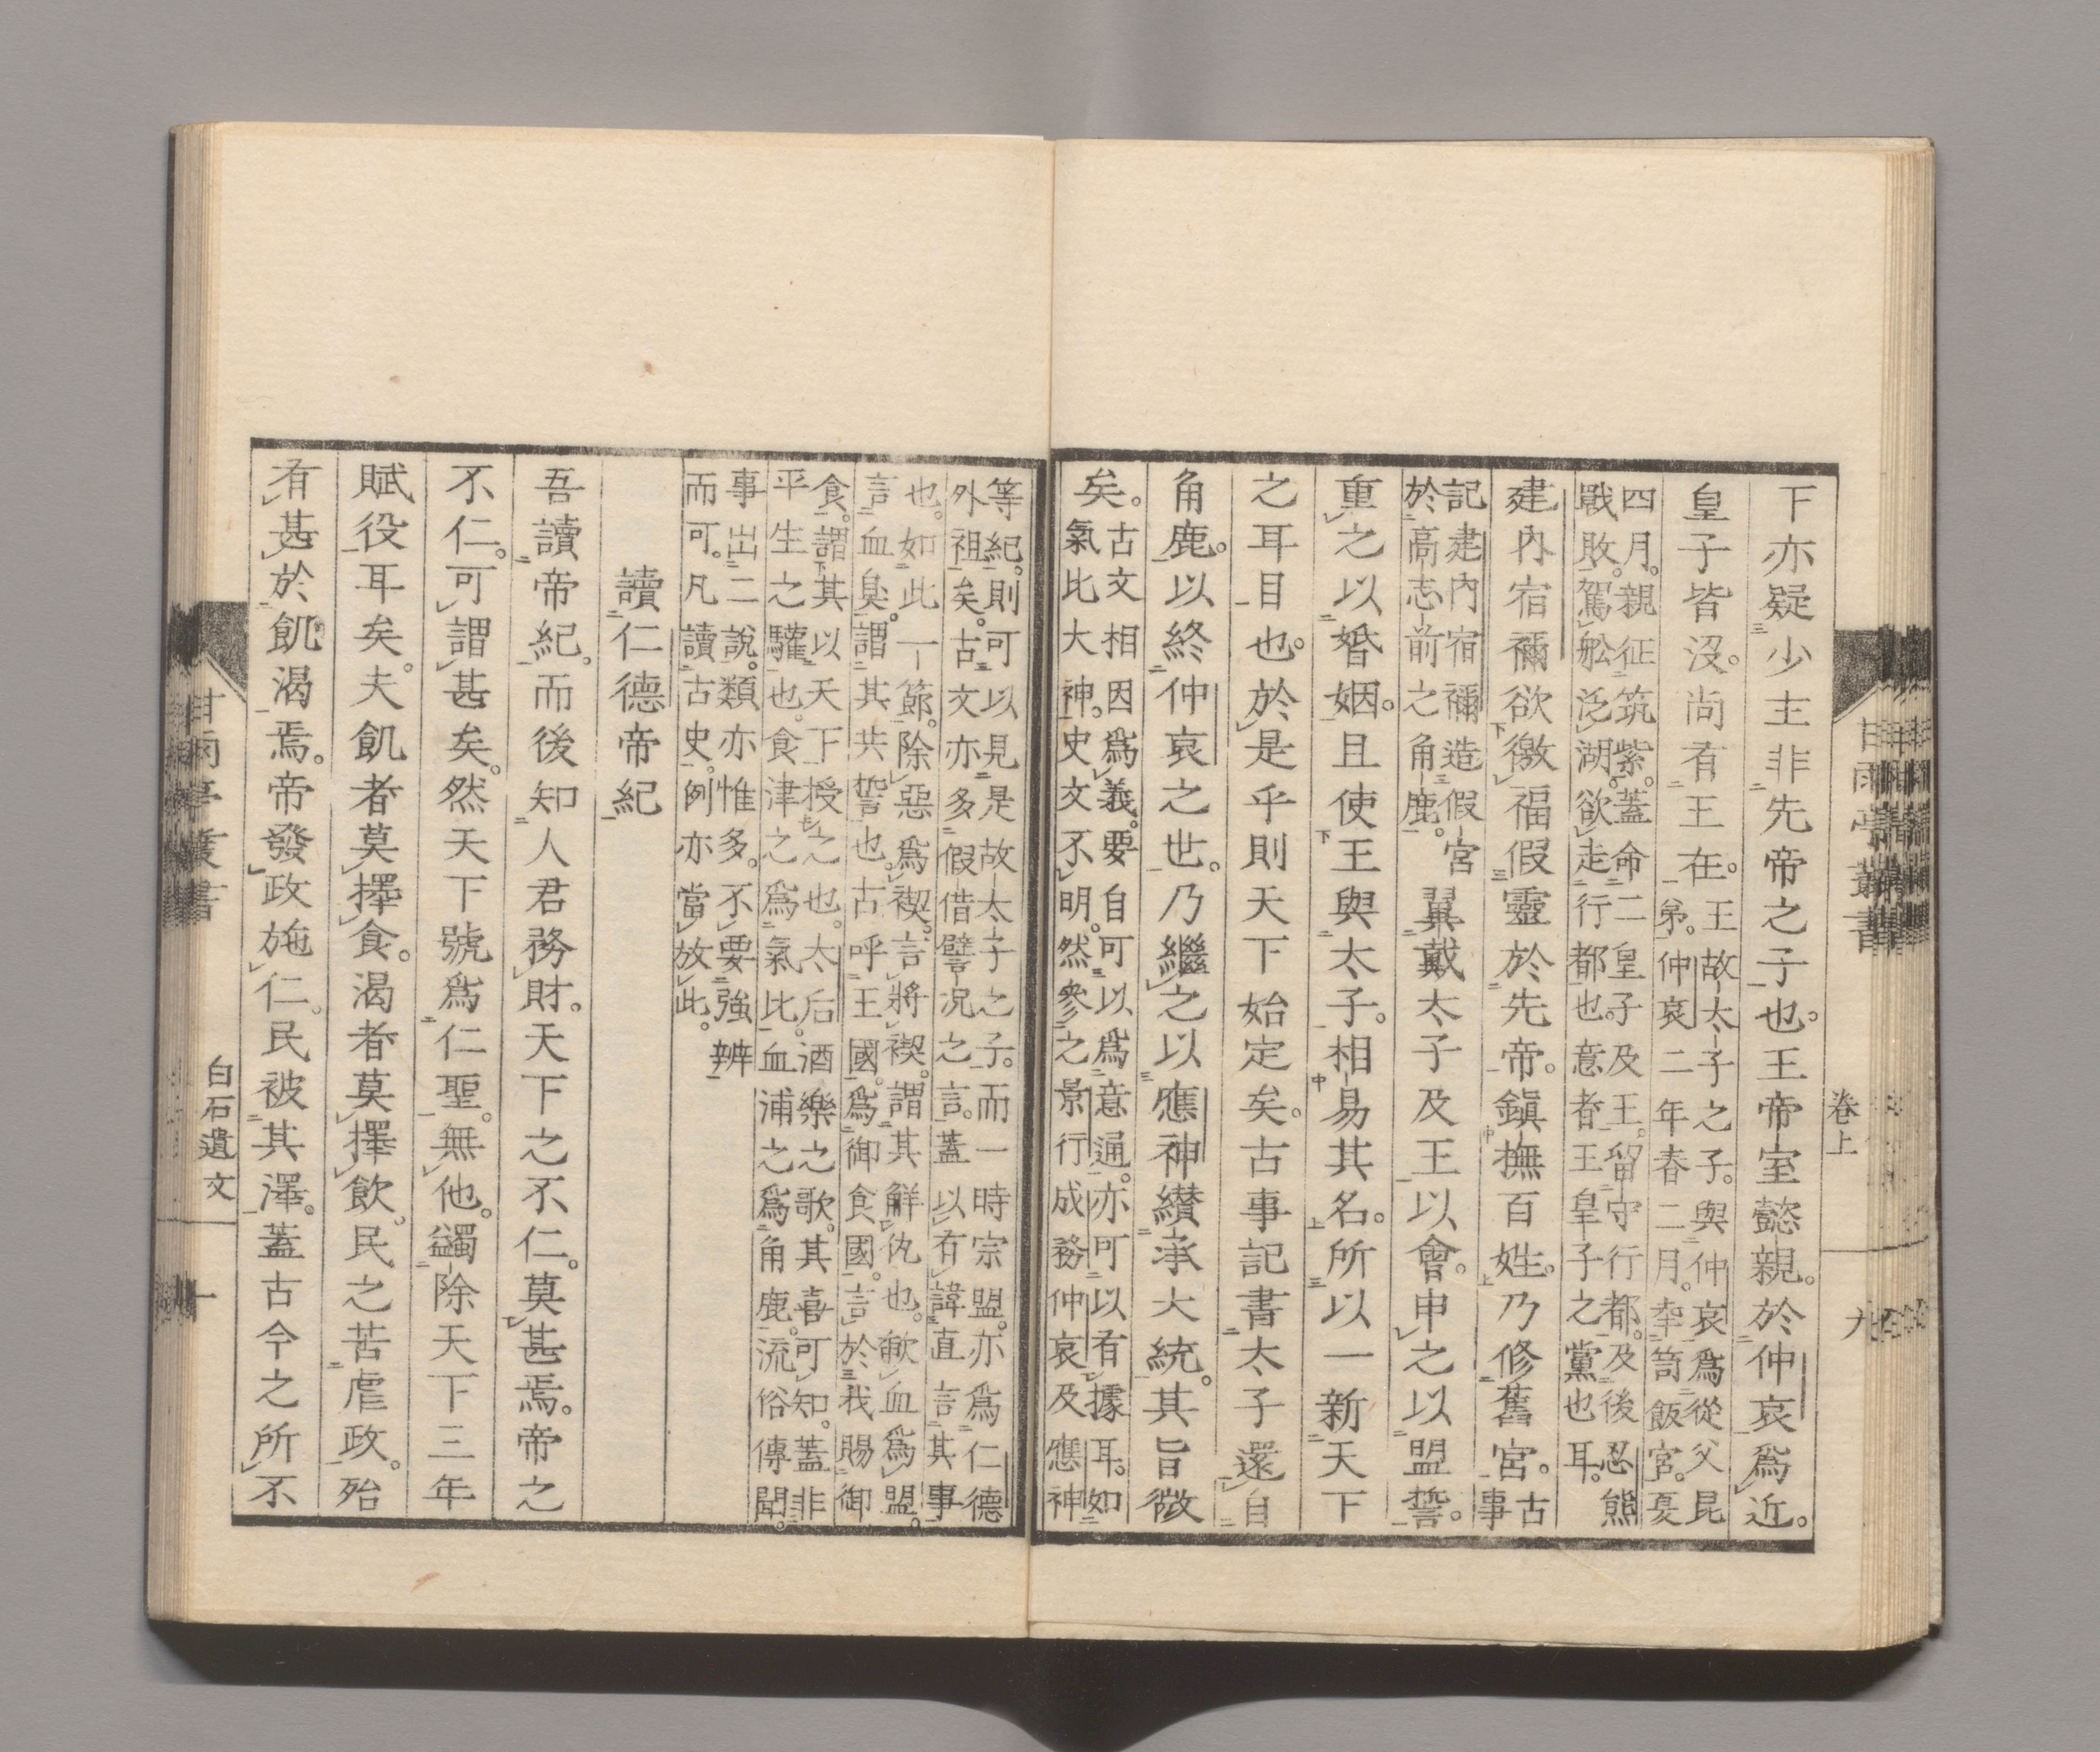 下亦疑少主非先帝之子也。王帝室懿親。於仲哀爲近。
皇子皆沒。尚有王在。
王故太子之子。與仲哀爲從父昆
弟。仲哀二年春二月。幸笥飯宮。夏
四月。親征筑紫。蓋命二皇子及王。留守行都。及後忍熊
戰敗。駕舩泛湖。欲走行都也。意者王皇子之黨也耳。
建內宿禰欲徼福假靈於先帝。鎭撫百姓。乃修舊宮。
古
事
記建內宿禰造假宮
於高志前之角鹿。
翼戴太子及王以會。申之以盟誓。
重之以婚姻。且使王與太子。相易其名。所以一新天下
之耳目也。於是乎則天下始定矣。古事記書太子還自
角鹿。以終仲哀之世。乃繼之以應神纉承大統。其旨微
矣。
古文相因爲義。要自可以爲意通。亦可以有據耳。如
氣比大神。史文不明。然參之景行成務仲哀及應神
等紀。則可以見是故太子之子。而一時宗盟。亦爲仁德
外祖矣。古文亦多假借譬況之言。蓋以有諱直言其事
也。如此一節。除惡爲禊。言將禊。謂其解仇也。歃血爲盟。
言血臭。謂其共誓也。古呼王國。爲御食國。言於我賜御
食。謂其以天下授之也。太后酒樂之歌。其喜可知。蓋非
平生之驩也。食津之爲氣比。血浦之爲角鹿。流俗傳聞。
事出二說。類亦惟多。不要強辨
而可。凡讀古史。例亦當放此。
讀仁德帝紀
吾讀帝紀。而後知人君務財。天下之不仁。莫甚焉。帝之
不仁。可謂甚矣。然天下號爲仁聖。無他。蠲除天下三年
賦役耳矣。夫飢者莫擇食。渴者莫擇飲。民之苦虐政。殆
有甚於飢渴焉。帝發政施仁。民被其澤。蓋古今之所不
甘雨亭叢書
卷上
九
甘雨亭叢書
白石遺文